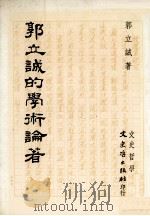 郭立誠著
郭立誠的學術論著
文史哲學
文史哲出版社印行